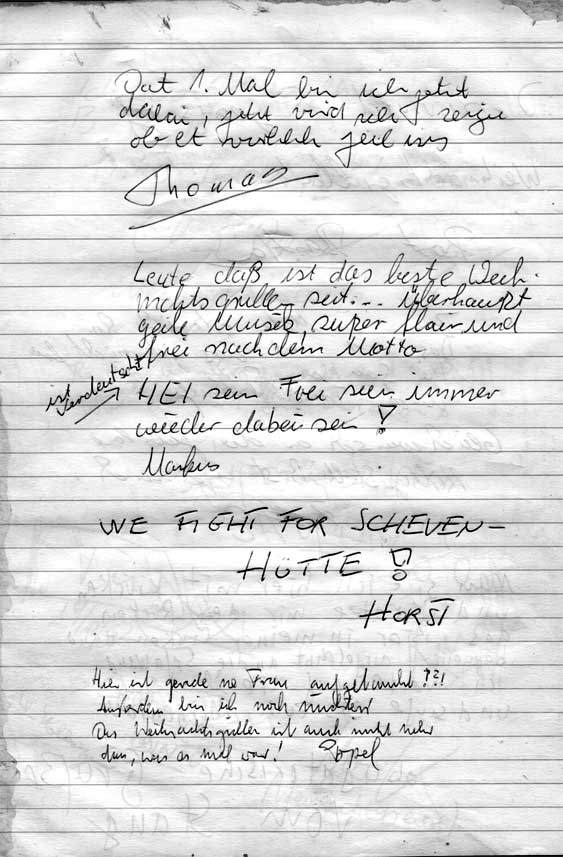 Dat 1. Mal bin ich jetzt
dabai, jetzt wird sich zeigen
ob et wirklich geil is
Thomas
Leute daß ist das beste Weih-
nachtsgrillen seit... überhaupt
geile Musik, super flair und
frei nach dem Motto
ist verdeutscht
HEI sein Frei sein immer
wieder dabei sein !
Markus
WE FIGHT FOR SCHEVEN-
HÜTTE !
HORST
Hier ist gerade ne Frau aufgetaucht ??!
Außerdem bin ich noch nüchtern
Das Weihnachtsgrillen ist auch nicht mehr
das, was es mal war!